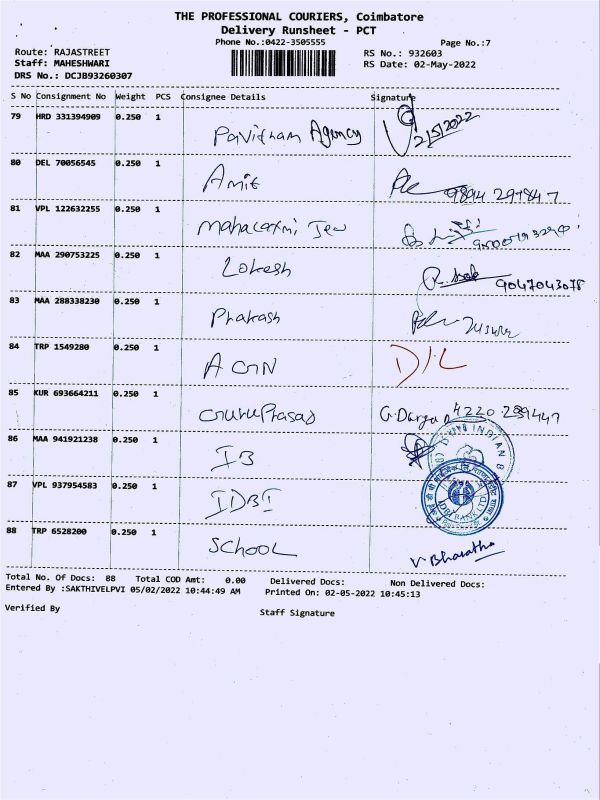 THE PROFESSIONAL COURIERS, Coimbatore
Delivery Runsheet - PCT
Phone No.:0422-3505555
Page No.:7
Route: RAJASTREET
RS No.: 932603
Staff: MAHESHWARI
RS Date: 02-May-2022
DRS No.: DCJB93260307
S No Consignment No Weight PCS Consignee Details Signature
79 HRD 331394909 0.250 1 Pavitham Agency 2/5/2022
80 DEL 70056545 0.250 1 Amit
81 VPL 122632255 0.250 1 Mahalaxmi Jew
82 MAA 290753225 0.250 1 Lokesh 9047043078
83 MAA 288338230 0.250 1 Prakash
84 TRP 1549280 0.250 1 A GN D/L
85 KUR 693664211 0.250 1 GuruPrasad G.Durga
86 MAA 941921238 0.250 1 IB
87 VPL 937954583 0.250 1 IDBI
88 TRP 6528200 0.250 1 SCHOOL V. Bharatha
Total No. Of Docs: 88 Total COD Amt: 0.00 Delivered Docs: Non Delivered Docs:
Entered By :SAKTHIVELPVI 05/02/2022 10:44:49 AM Printed On: 02-05-2022 10:45:13
Verified By
Staff Signature